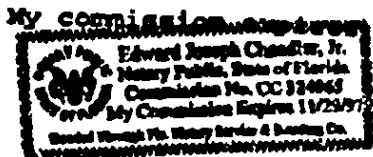 My commission
Edward Joseph Chandler, Jr.
Notary Public, State of Florida
Commission No. CC 324065
My Commission Expires 11/29/97
Bonded Through Fla. Notary Service & Bonding Co.